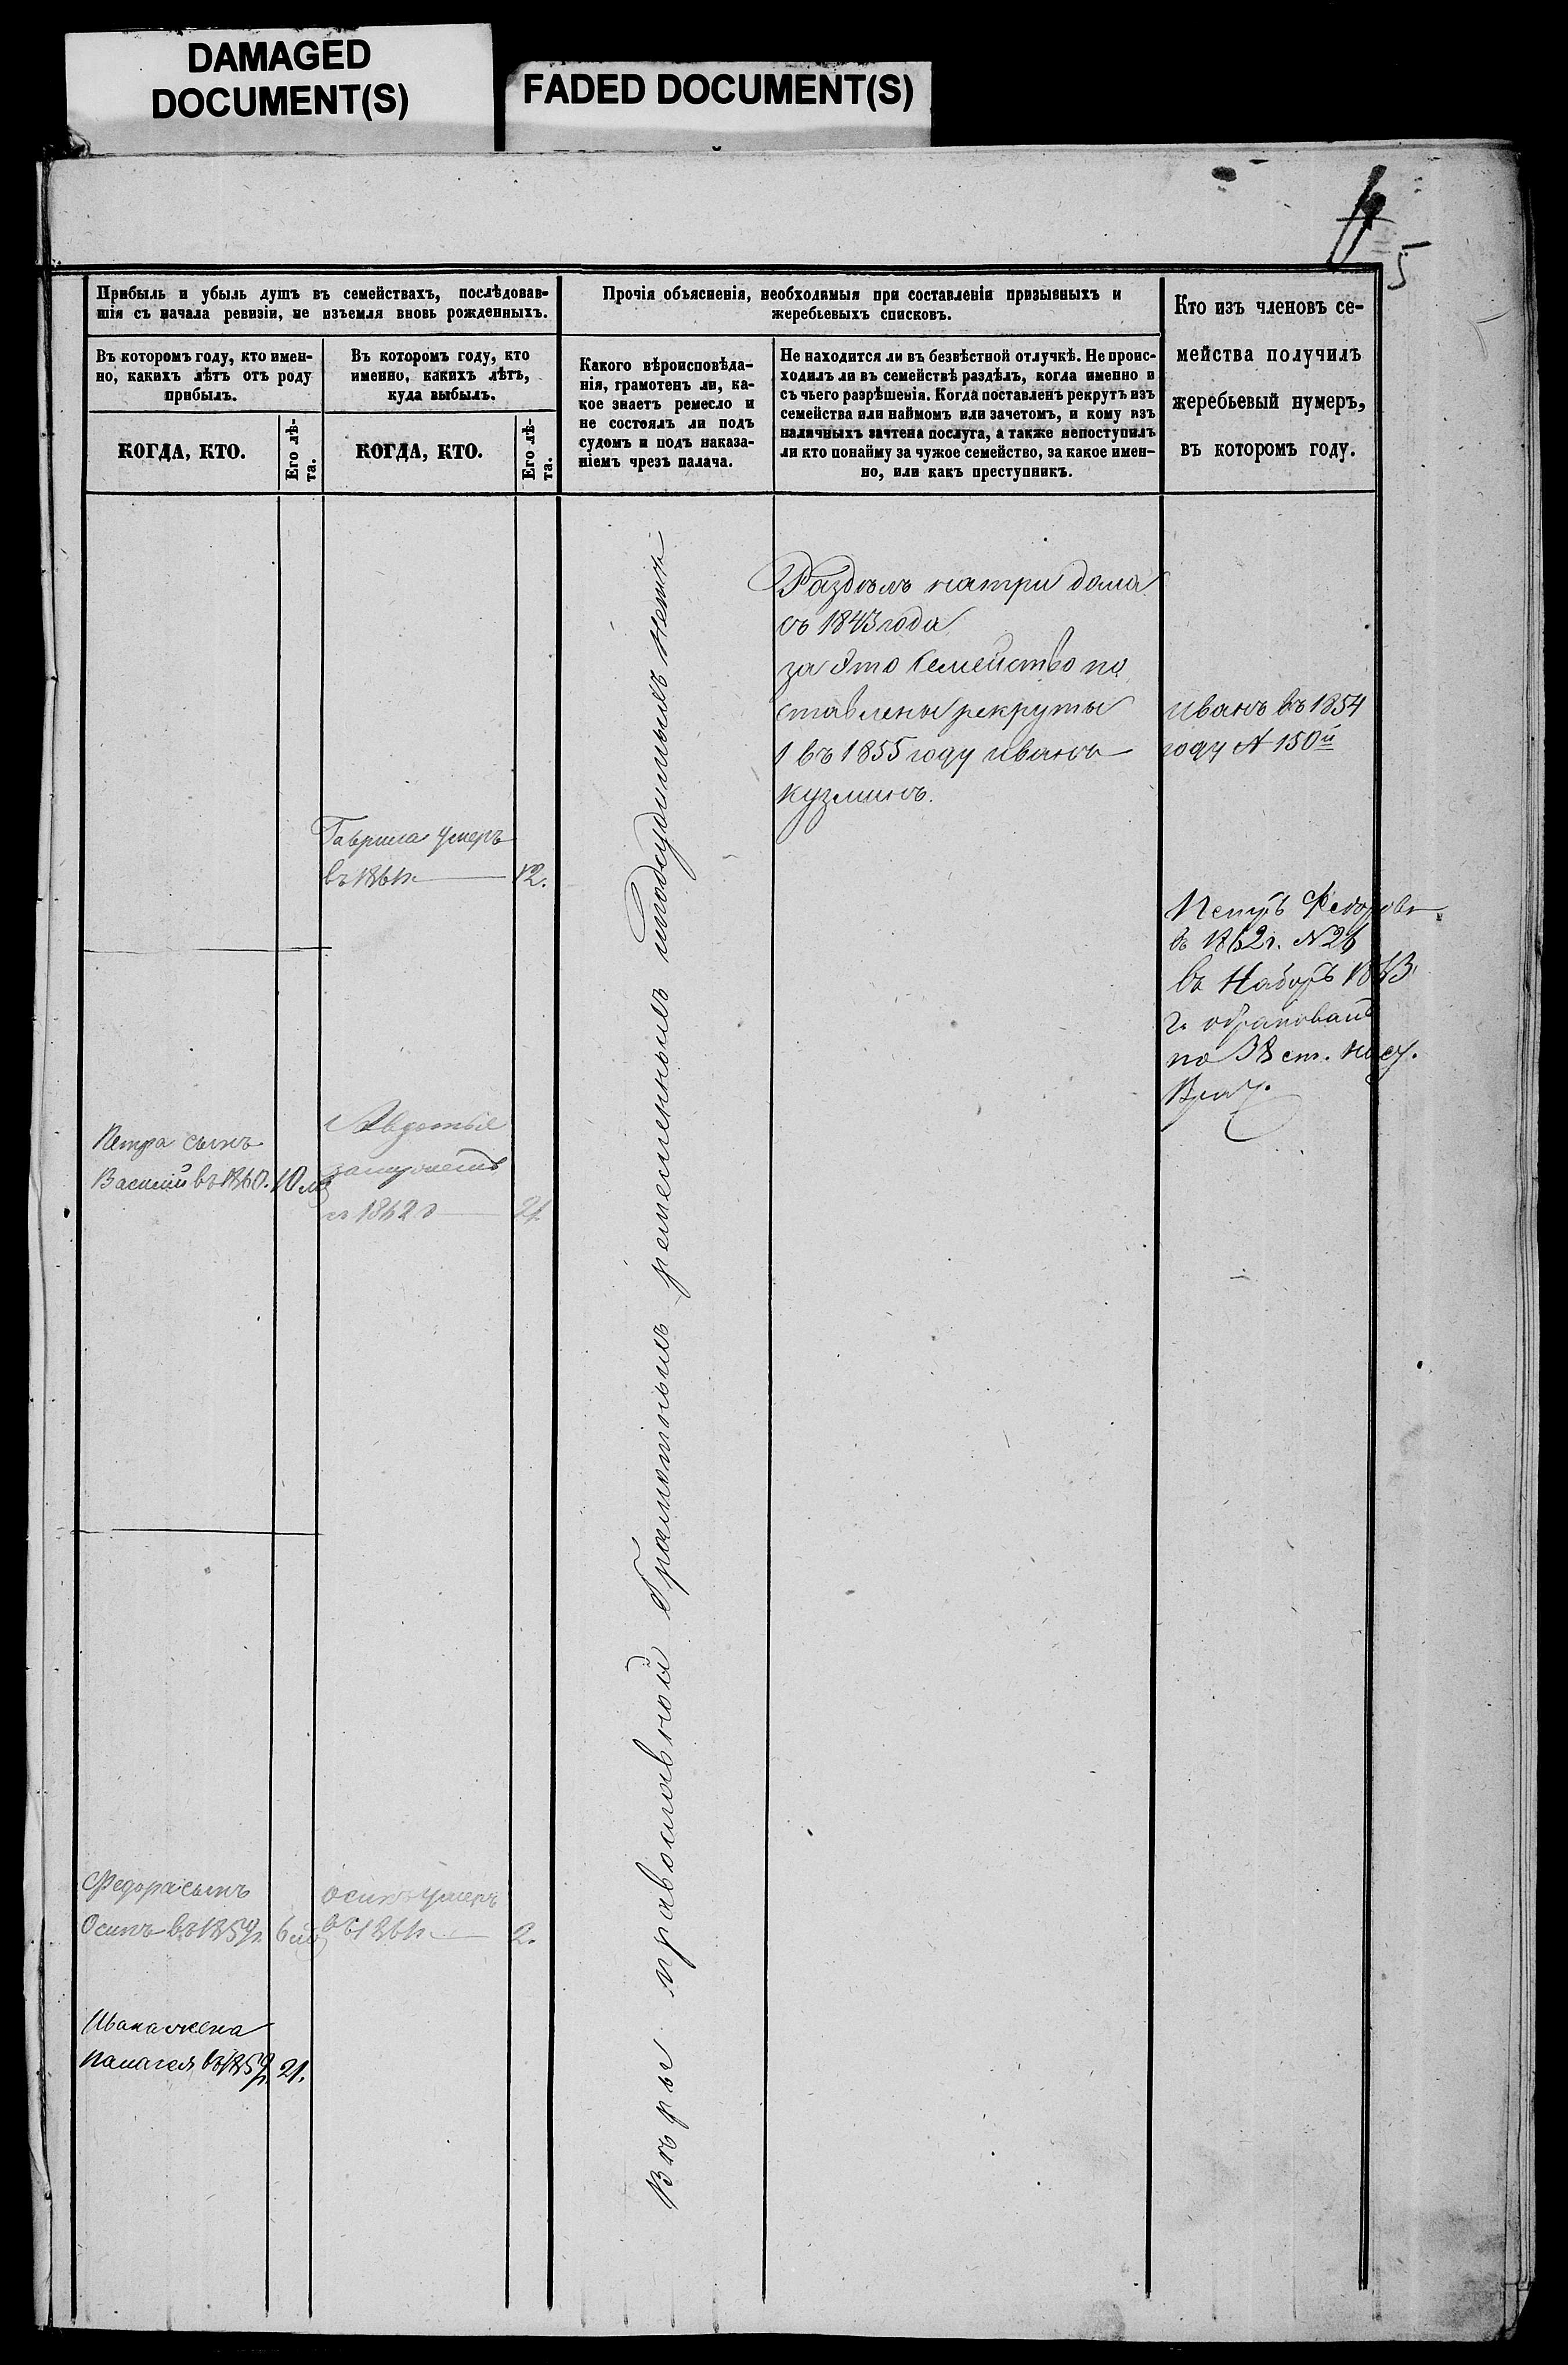 DAMAGED
DOCUMENT(S)
FADED DOCUMENT(S)
5
Прибыль и убыль душъ въ семействахъ, послѣдовав-
шія съ начала ревизіи, не изъемля вновь рожденныхъ.
Въ которомъ году, кто имен-
но, какихъ лѣтъ отъ роду
прибылъ.
КОГДА, КТО.
Его лѣ-
та.
Въ которомъ году, кто
именно, какихъ лѣтъ,
куда выбылъ.
КОГДА, КТО.
Его лѣ-
та.
Прочія объясненія, необходимыя при составленіи призывныхъ и
жеребьевыхъ списковъ.
Какого вѣроисповѣда-
нія, грамотенъ ли, ка-
кое знаетъ ремесло и
не состоялъ ли подъ
судомъ и подъ наказа-
ніемъ чрезъ палача.
Не находится ли въ безвѣстной отлучкѣ. Не проис-
ходилъ ли въ семействѣ раздѣлъ, когда именно и
съ чьего разрѣшенія. Когда поставленъ рекрутъ изъ
семейства или наймомъ или зачетомъ, и кому изъ
наличныхъ зачтена послуга, а также непоступилъ
ли кто понайму за чужое семейство, за какое имен-
но, или какъ преступникъ.
Кто изъ членовъ се-
мейства получилъ
жеребьевый нумеръ,
въ которомъ году.
Раздѣлъ натри дома
съ 1843 года
за Это Семейство по
ставлены рекруты
1 въ 1855 году иванъ
кузминъ.
иванъ въ 1854
году № 150й
Гаврила умеръ
въ 1861г. 12.
Петръ Федоровъ
въ 1862г. N 26
въ Наборъ 1863
г. обракованъ
по 38 ст. наст.
Врач.
Петра сынъ
Василий въ 1860. 10 м
Авдотья
замужемъ
1862 21
Вѣры православной Грамотныхъ ремеленныхъ иподсудимыхъ нетъ
Федора сынъ
Осипъ въ 1859г. 6
осипъ умеръ
въ 1861г. 2.
Ивана жена
палагея въ 1859г. 21.